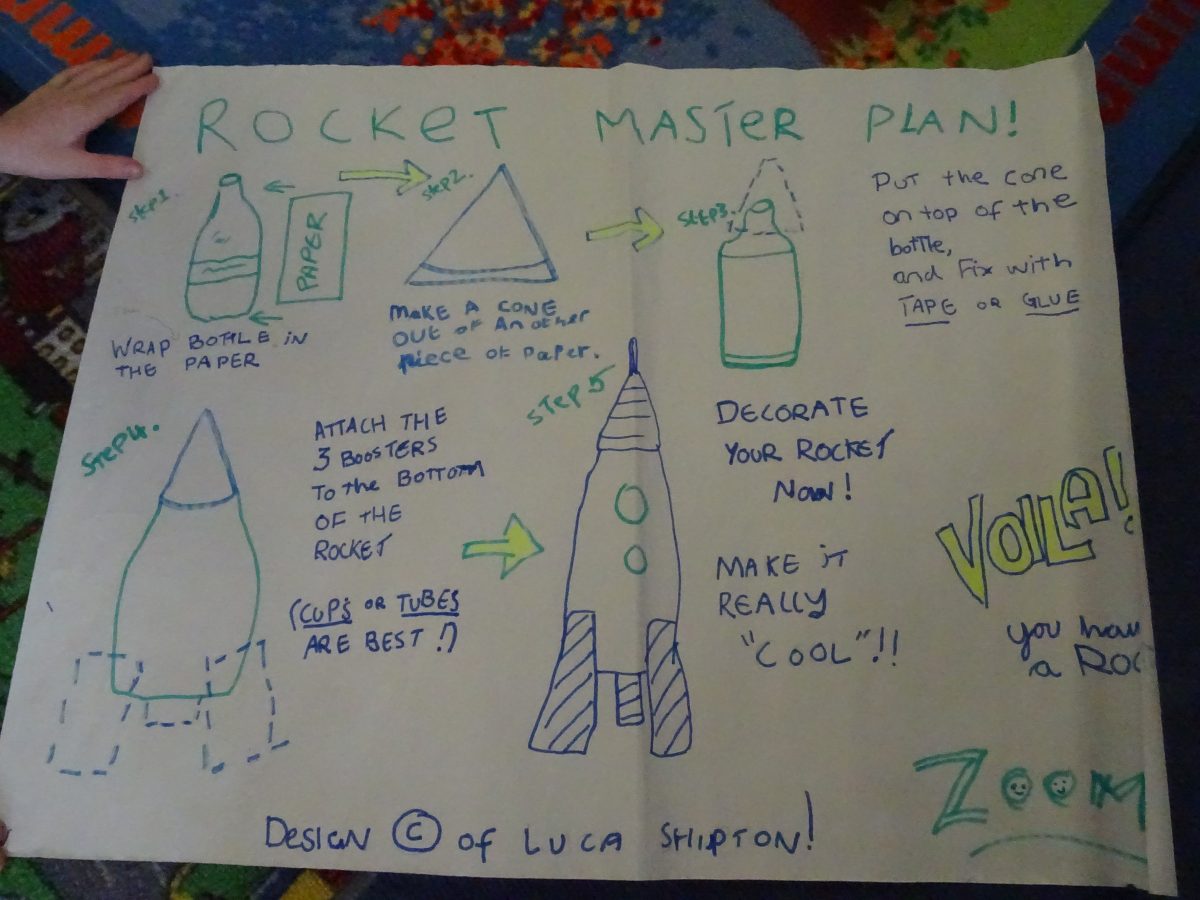 ROCKET MASTER PLAN!
Step1.
PAPER
WRAP BOTTLE iN
THE PAPER
Step2.
MAKE A CONE
OUT OF Another
piece of Paper.
STEP3.
PUT the cone
on top of the
bottle,
and Fix with
TAPE OR GLUE
STEP4.
ATTACH THE
3 BOOSTERS
To the BOTTOM
OF THE
ROCKET
(CUPS OR TUBES
ARE BEST!)
STEP 5
DECORATE
YOUR ROCKET
NOW!
MAKE iT
REALLY
"COOL"!!
VOILA!
you hav
a ROC
ZOOM
DESIGN © of LUCA SHIPTON!